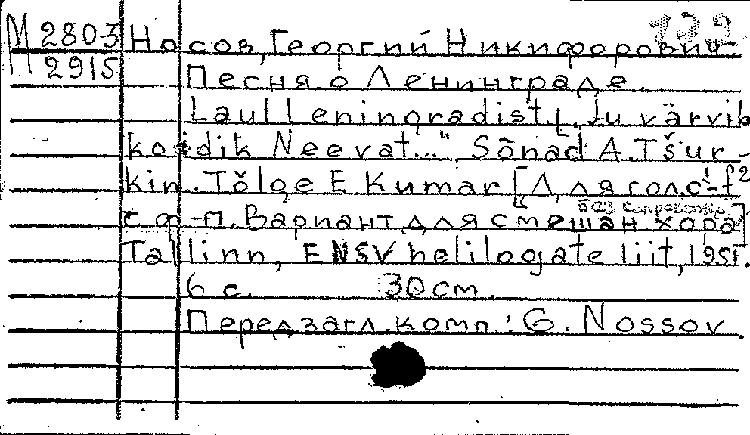 М 2803 Носов, Георгий Никифорович
М 2915 Песня о Ленинграде.
Laul Leningradist. [„Ju värvib
koidik Neevat..." Sõnad A. Tšur-
kin. Tõlge E. Kumar [Для голоса
с ф-п. Вариант для смешан. хора]
без сопровожд.
Tallinn, ENSV heliloojate liit, 1951.
6 с. 30 cm.
Перед загл. комп.: G. Nossov.